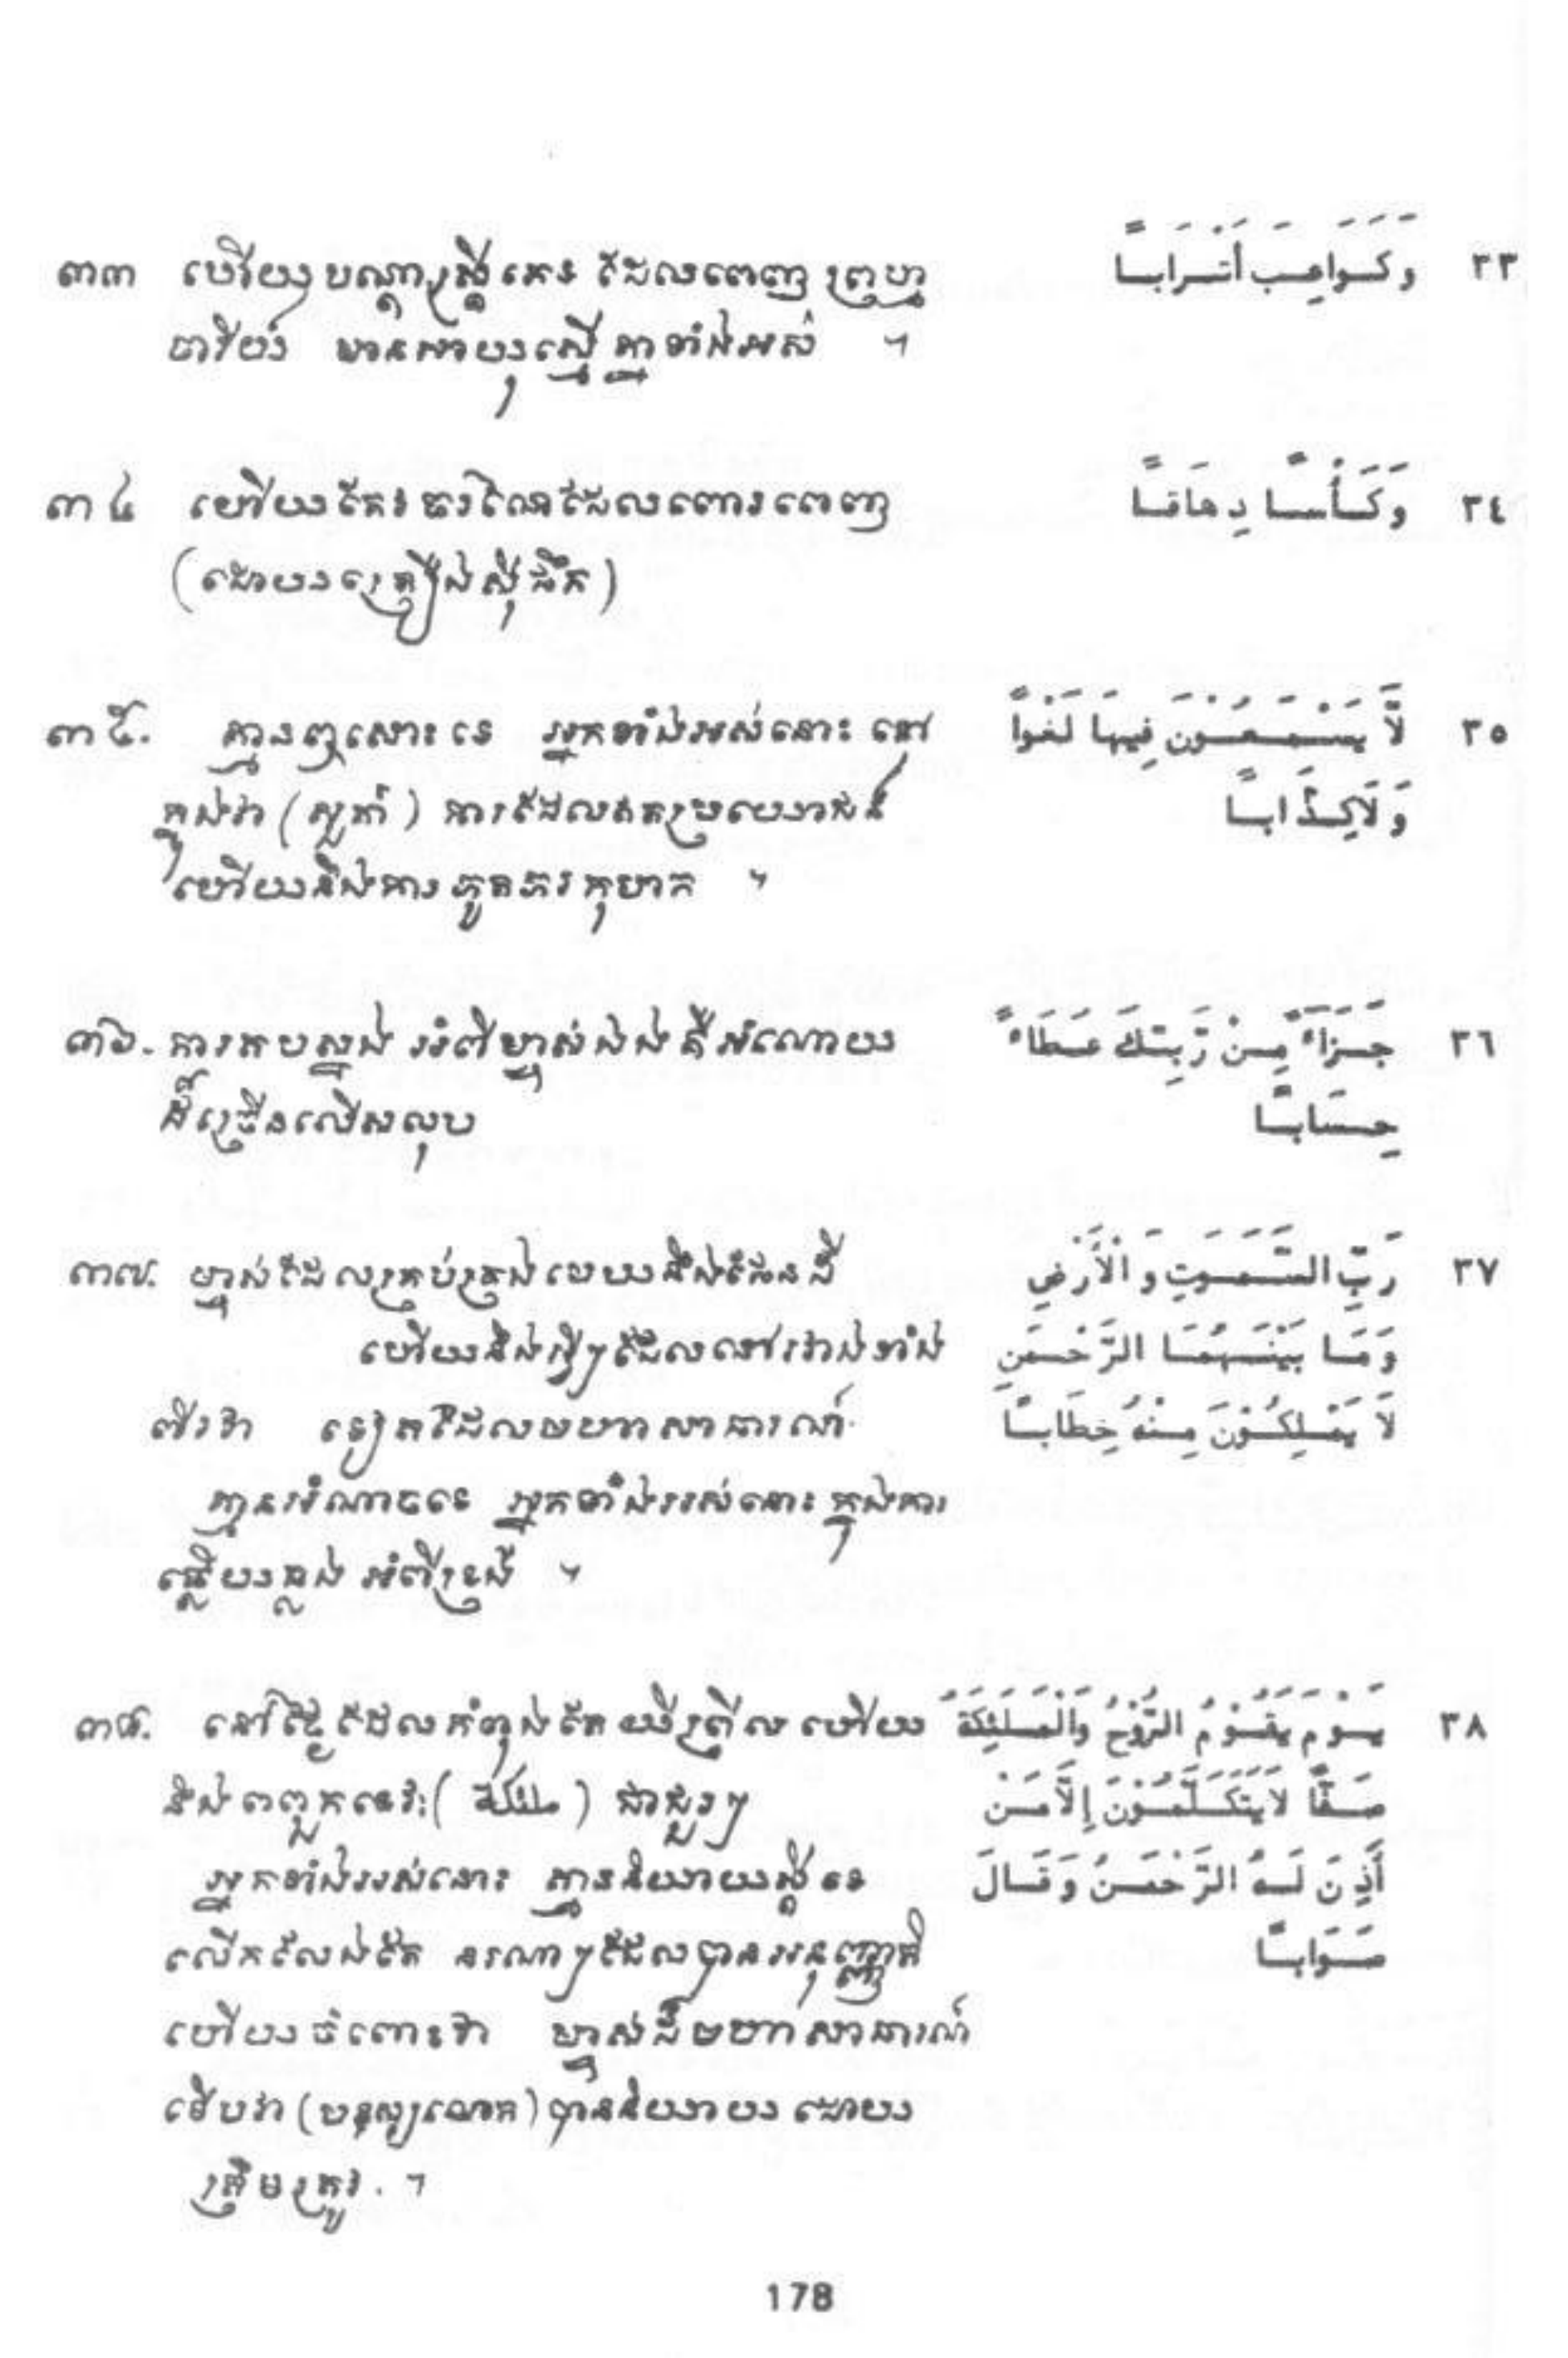 ៣៣ ហើយបណ្ដាស្រ្ដីភេទ ដែលពេញ ព្រហ្ម
ចារីយ៍ មានអាយុស្មើគ្នាទាំងអស់ ។
٣٣ وَكَوَاعِبَ أَتْرَابًا
៣៤ ហើយកែវចរណៃដែលពោរពេញ
(ដោយគ្រឿងស៊ីផឹក)
٣٤ وَكَأْسًا دِهَاقًا
៣៥. គ្មានឮសោះទេ អ្នកទាំងអស់នោះ នៅ
ក្នុងវា (សួគ៌) ការដែលឥតប្រយោជន៍
ហើយនិងការ ភូតភរកុហក ។
٣٥ لَّا يَسْمَعُوْنَ فِيهَا لَغْوًا
وَلَا كِذَّابًا
៣៦. ការតបស្នង អំពីម្ចាស់ឯងគឺអំណោយ
ដ៏ច្រើនលើសលុប
٣٦ جَزَآءً مِنْ رَّبِّكَ عَطَاءً
حِسَابًا
៣៧. ម្ចាស់ដែលគ្រប់គ្រងមេឃនិងផែនដី
ហើយនិងអ្វីៗដែលនៅរវាងទាំង
ពីរវា ទៀតដែលមហាសាធារណ៍.
គ្មានអំណាចទេ អ្នកទាំងអស់នោះ ក្នុងការ
ឆ្លើយឆ្លង អំពីទ្រង់ ។
٣٧ رَبِّ السَّمٰوٰتِ وَالْأَرْضِ
وَمَا بَيْنَهُمَا الرَّحْمٰنِ
لَا يَمْلِكُوْنَ مِنْهُ خِطَابًا
៣៨. នៅថ្ងៃដែលកំពុងតែ យីព្រីល ហើយ
និងពពួកទេវៈ (ملئكة) ជាជួរៗ
អ្នកទាំងអស់នោះ គ្មាននិយាយស្ដីទេ
លើកលែងតែ នរណាៗដែលបានអនុញ្ញាតិ
ហើយចំពោះវា ម្ចាស់ដ៏មហាសាធារណ៍
ទើបវា (មនុស្សលោក) បាននិយាយ ដោយ
ត្រឹមត្រូវ. ។
٣٨ يَوْمَ يَقُوْمُ الرُّوْحُ وَالْمَلٰئِكَةُ
صَفًّا لَا يَتَكَلَّمُوْنَ إِلَّا مَنْ
أَذِنَ لَهُ الرَّحْمٰنُ وَقَالَ
صَوَابًا
178